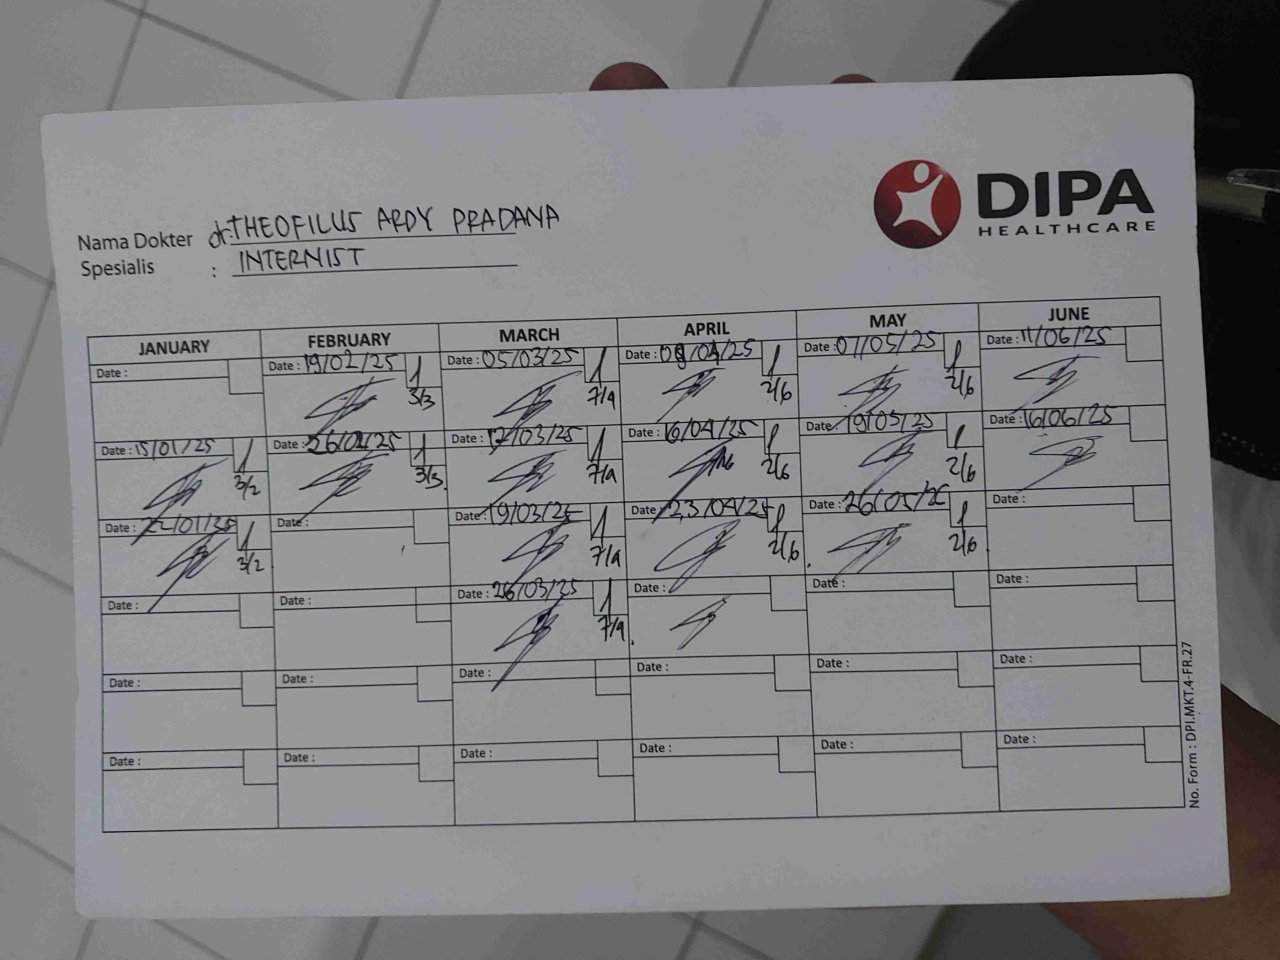 DIPA
HEALTHCARE
Nama Dokter dr. THEOFILUS ARDY PRADANA
Spesialis : INTERNIST
JANUARY FEBRUARY MARCH APRIL MAY JUNE
Date : Date : 19/02/25 Date : 05/03/25 Date : 09/04/25 Date : 07/05/25 Date : 11/06/25
3/3 7/4 2/6 2/6
Date : 15/01/25 Date : 26/02/25 Date : 12/03/25 Date : 16/04/25 Date : 19/05/25 Date : 16/06/25
3/2 3/3 7/4 2/6 2/6
Date : 22/01/25 Date : Date : 19/03/25 Date : 23/04/25 Date : 26/05/25 Date :
3/2 7/4 2/6 2/6
Date : Date : Date : 26/03/25 Date : Date : Date :
7/4
Date : Date : Date : Date : Date : Date :
Date : Date : Date : Date : Date : Date :
No. Form : DPI.MKT.4-FR.27